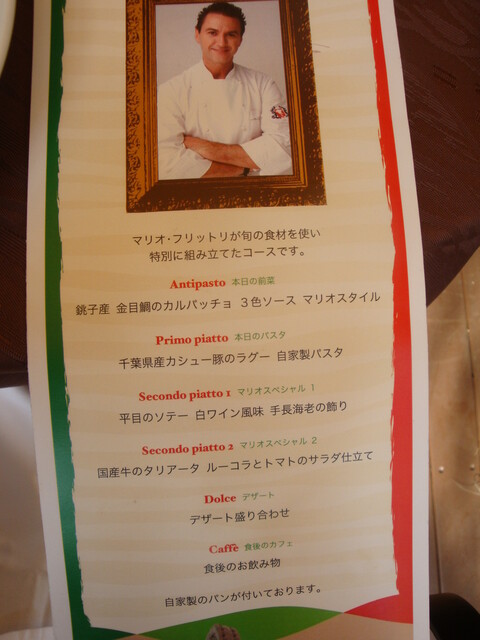 マリオ・フリットリが旬の食材を使い
特別に組み立てたコースです。
Antipasto 本日の前菜
銚子産 金目鯛のカルパッチョ 3色ソース マリオスタイル
Primo piatto 本日のパスタ
千葉県産カシュー豚のラグー 自家製パスタ
Secondo piatto 1 マリオスペシャル 1
平目のソテー 白ワイン風味 手長海老の飾り
Secondo piatto 2 マリオスペシャル 2
国産牛のタリアータ ルーコラとトマトのサラダ仕立て
Dolce デザート
デザート盛り合わせ
Caffè 食後のカフェ
食後のお飲み物
自家製のパンが付いております。